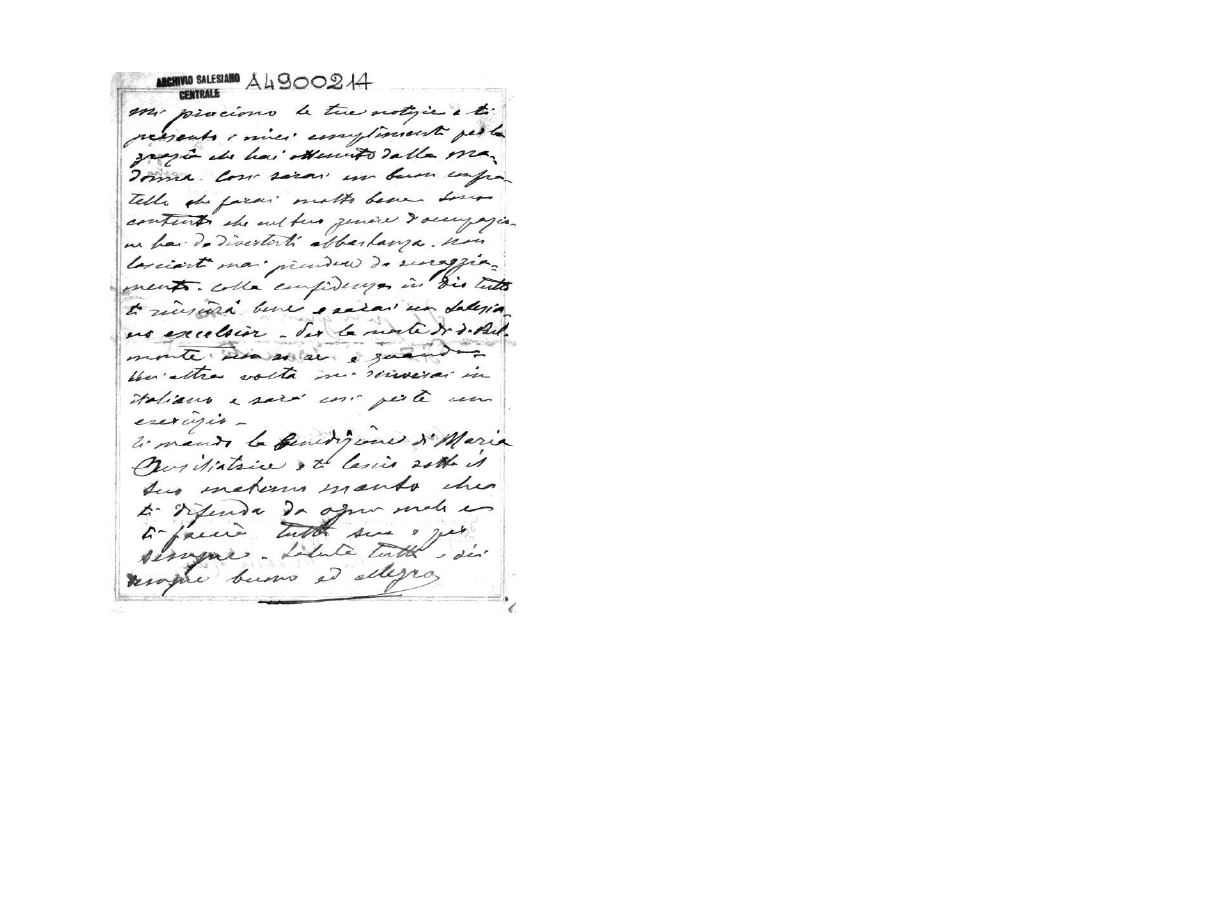 ARCHIVIO SALESIANO
CENTRALE
A4900214
Mi piaciono le tue notizie e ti
presento i miei complimenti per la
grazia che hai ottenuto dalla Ma=
donna. Cosi sarai un buon confra-
tello che farai molto bene. Sono
contento che nel tuo genere d'occupazio-
ne hai da divertirti abbastanza. Non
lasciarti mai prendere da scoraggia=
mento. Colla confidenza in Dio tutto
ti riuscirà bene e sarai un Salesia-
no excelsior. Per la morte di D. Bel-
monte non so se e quando=
Un'altra volta mi scriverai in
italiano e sarà così per te un
esercizio_
Ti mando la Benedizione di Maria
Ausiliatrice e ti lascio sotto il
suo materno manto che
ti difenda da ogni male e
ti faccia tutto suo e per
sempre. Saluta tutti e sii
sempre buono ed allegro